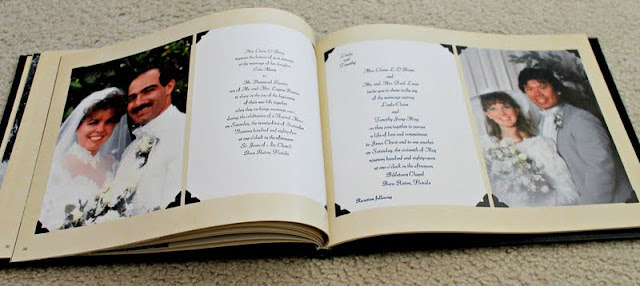 Mrs. Claire O'Brien
requests the honor of your presence
at the marriage of her daughter
Erin Marie
to
Mr. Raymond
son of Mr. and Mrs. Eugene
to share in the joy of the
of their new life together
when they exchange marriage vows
during the celebration of a Nuptial Mass
on Saturday, the
Nineteen hundred and eighty-
at one o'clock in the afternoon
St. Joan of Arc Church
Boca Raton, Florida
Linda
and
Timothy
Mrs. Claire L. O'Brien
and
Mr. and Mrs. Paul
invite you to share in the joy
of the marriage uniting
Linda Claire
and
Timothy
as they join together to pursue
a life of love and commitment
to Jesus Christ and to one another
on Saturday, the sixteenth of May
nineteen hundred and eighty-seven
at one o'clock in the afternoon
Bibletown Chapel
Boca Raton, Florida
Reception following